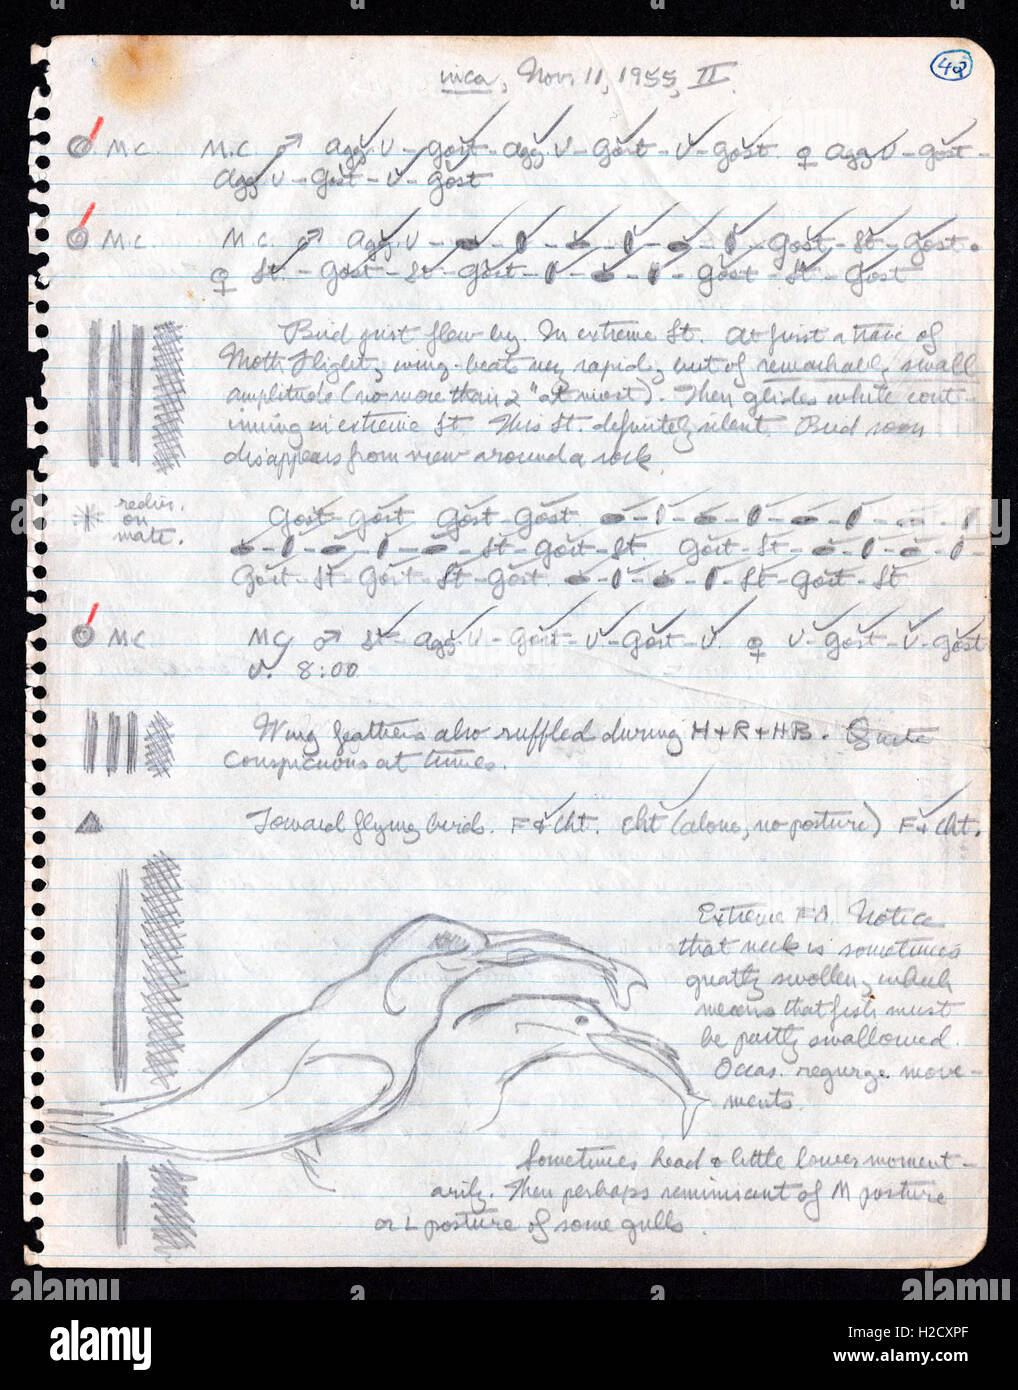 inca, Nov. 11, 1955, II.
48
M.C. M.C. ♂ Agg. V - Gost - Agg V - Gost - V - Gost. ♀ Agg V - Gost -
Agg V - Gost - V - Gost
M.C. M.C. ♂ Agg. V - Gost - St - Gost.
♀ St. - Gost - St - Gost - Gost - St. - Gost
Bird just flew by. In extreme St. At first a trace of
Moth Flight, wing-beats very rapid, but of remarkably small
amplitude (no more than 2" at most). Then glides while cont-
inuing in extreme St. This St. definitely silent. Bird soon
disappears from view around a rock.
redir.
on
mate.
Gost - Gost Gost - Gost
St - Gost - St. Gost - St
Gost - St - Gost - St - Gost. St - Gost - St
MC MC ♂ St - Agg V - Gost - V - Gost - V. ♀ V - Gost - V - Gost
V. 8:00
Wing feathers also ruffled during H+R+HB. Quite
conspicuous at times.
Toward flying birds. F & Cht. Cht (alone, no posture) F + Cht.
Extreme Notice
that neck is sometimes
greatly swollen, which
means that fish must
be partly swallowed.
Occas. regurge. move-
ments.
Sometimes head a little lower moment-
arily. Then perhaps reminiscent of M posture
or L posture of some gulls.
alamy
alamy stock photo
H2CXPF
www.alamy.com